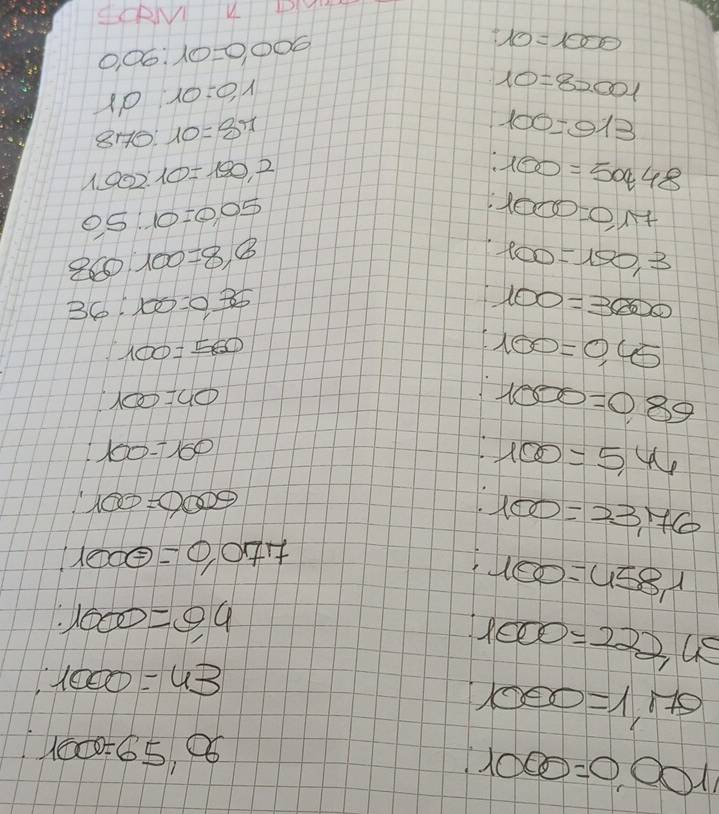 SCRIVI
0,06:10=0,006
10:10=0,1
870:10=87
1.902:10=190,2
0,5:10=0,05
860:100=8,6
36:100=0,36
:100=560
:100=40
:100=160
:100=0,009
:1000=0,077
:1000=9,4
:1000=43
:1000=65,06
:10=1000
:10=82001
:100=913
:100=509,48
:1000=0,17
:100=190,3
:100=3000
:100=0,45
:1000=0,89
:100=5,44
:100=23,76
:100=458,1
:1000=222,45
:1000=1,179
:1000=0,001